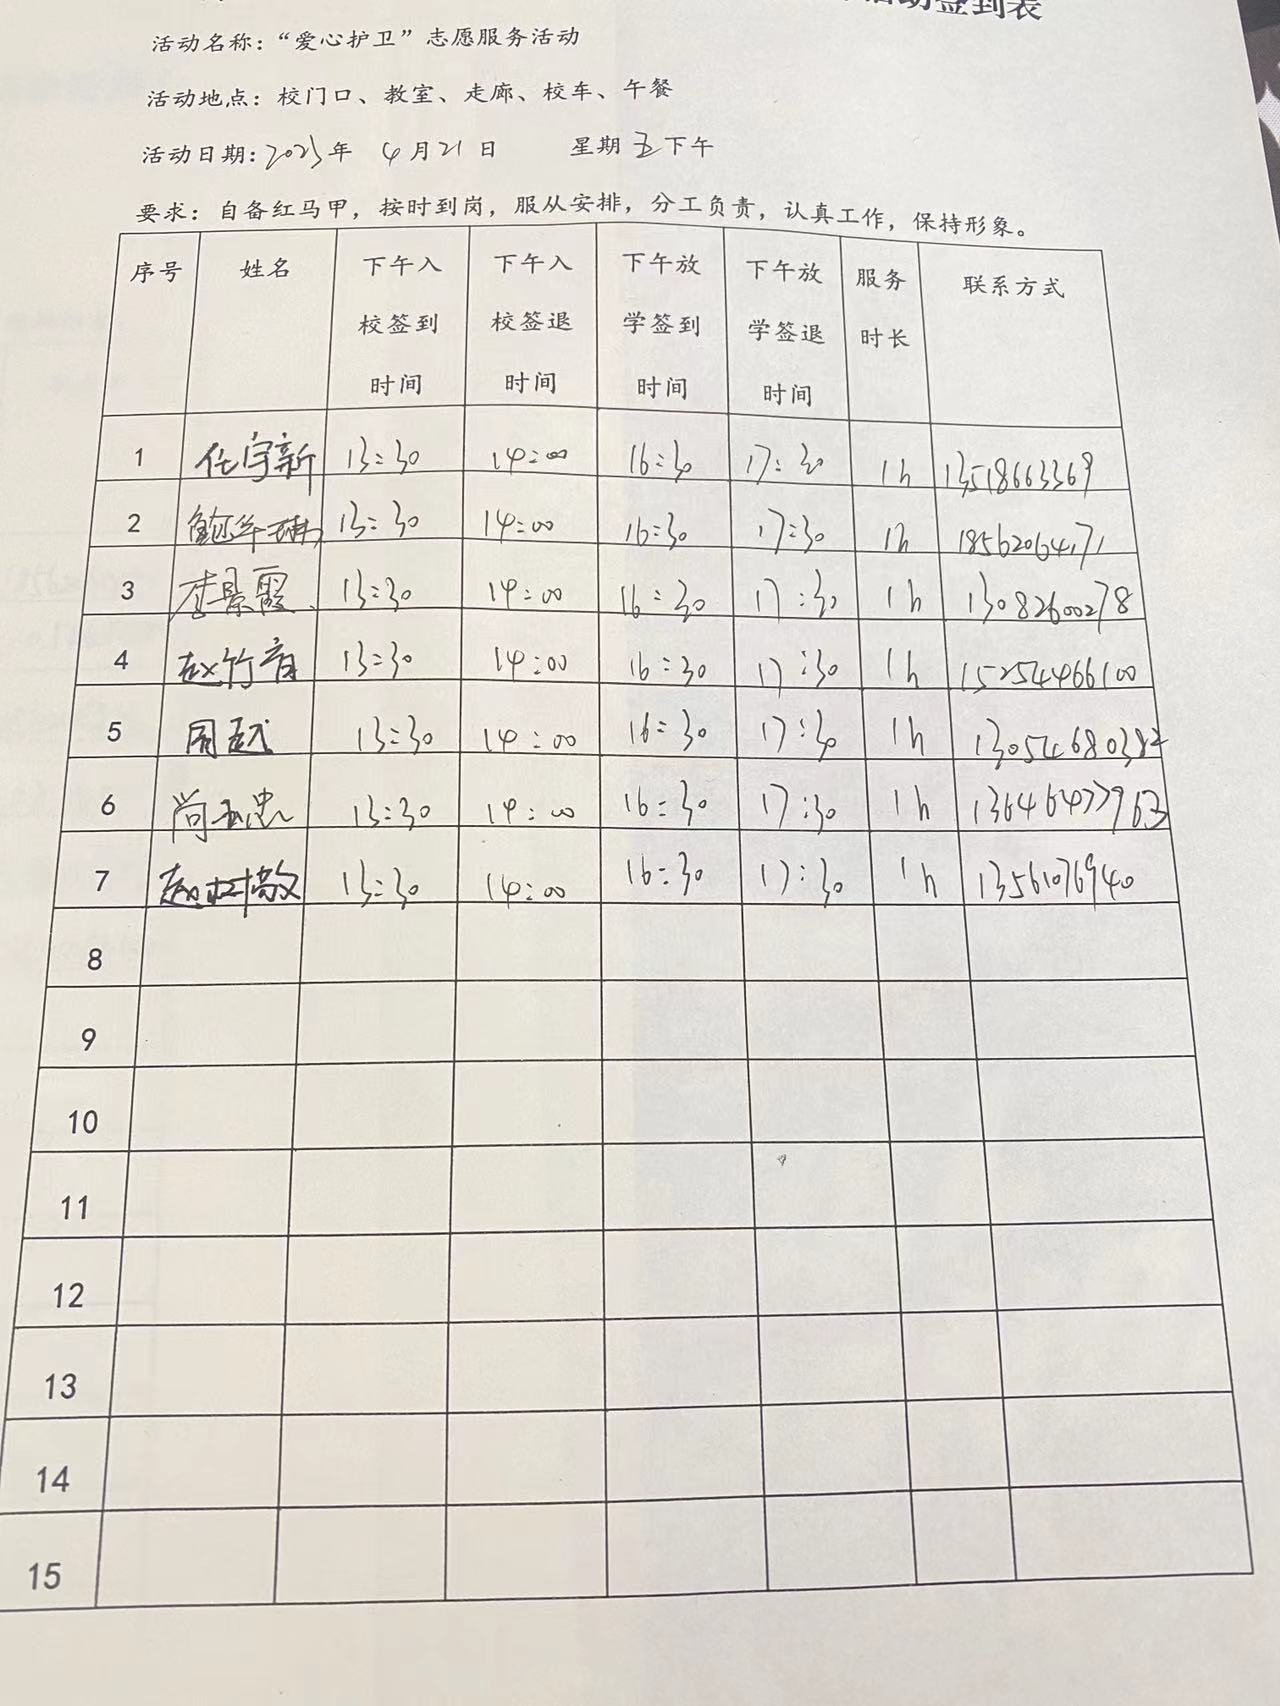 活动签到表
活动名称：“爱心护卫”志愿服务活动
活动地点：校门口、教室、走廊、校车、午餐
活动日期：2023年 4月21日 星期五下午
要求：自备红马甲，按时到岗，服从安排，分工负责，认真工作，保持形象。
序号 姓名 下午入校签到时间 下午入校签退时间 下午放学签到时间 下午放学签退时间 服务时长 联系方式
1 任宇新 13:30 14:00 16:30 17:30 1h 13518663369
2 13:30 14:00 16:30 17:30 1h 18562064171
3 李景霞 13:30 14:00 16:30 17:30 1h 13082600278
4 赵竹青 13:30 14:00 16:30 17:30 1h 15254466100
5 13:30 14:00 16:30 17:30 1h 13054680382
6 尚玉忠 13:30 14:00 16:30 17:30 1h 13646477963
7 赵树敬 13:30 14:00 16:30 17:30 1h 13561076940
8
9
10
11
12
13
14
15